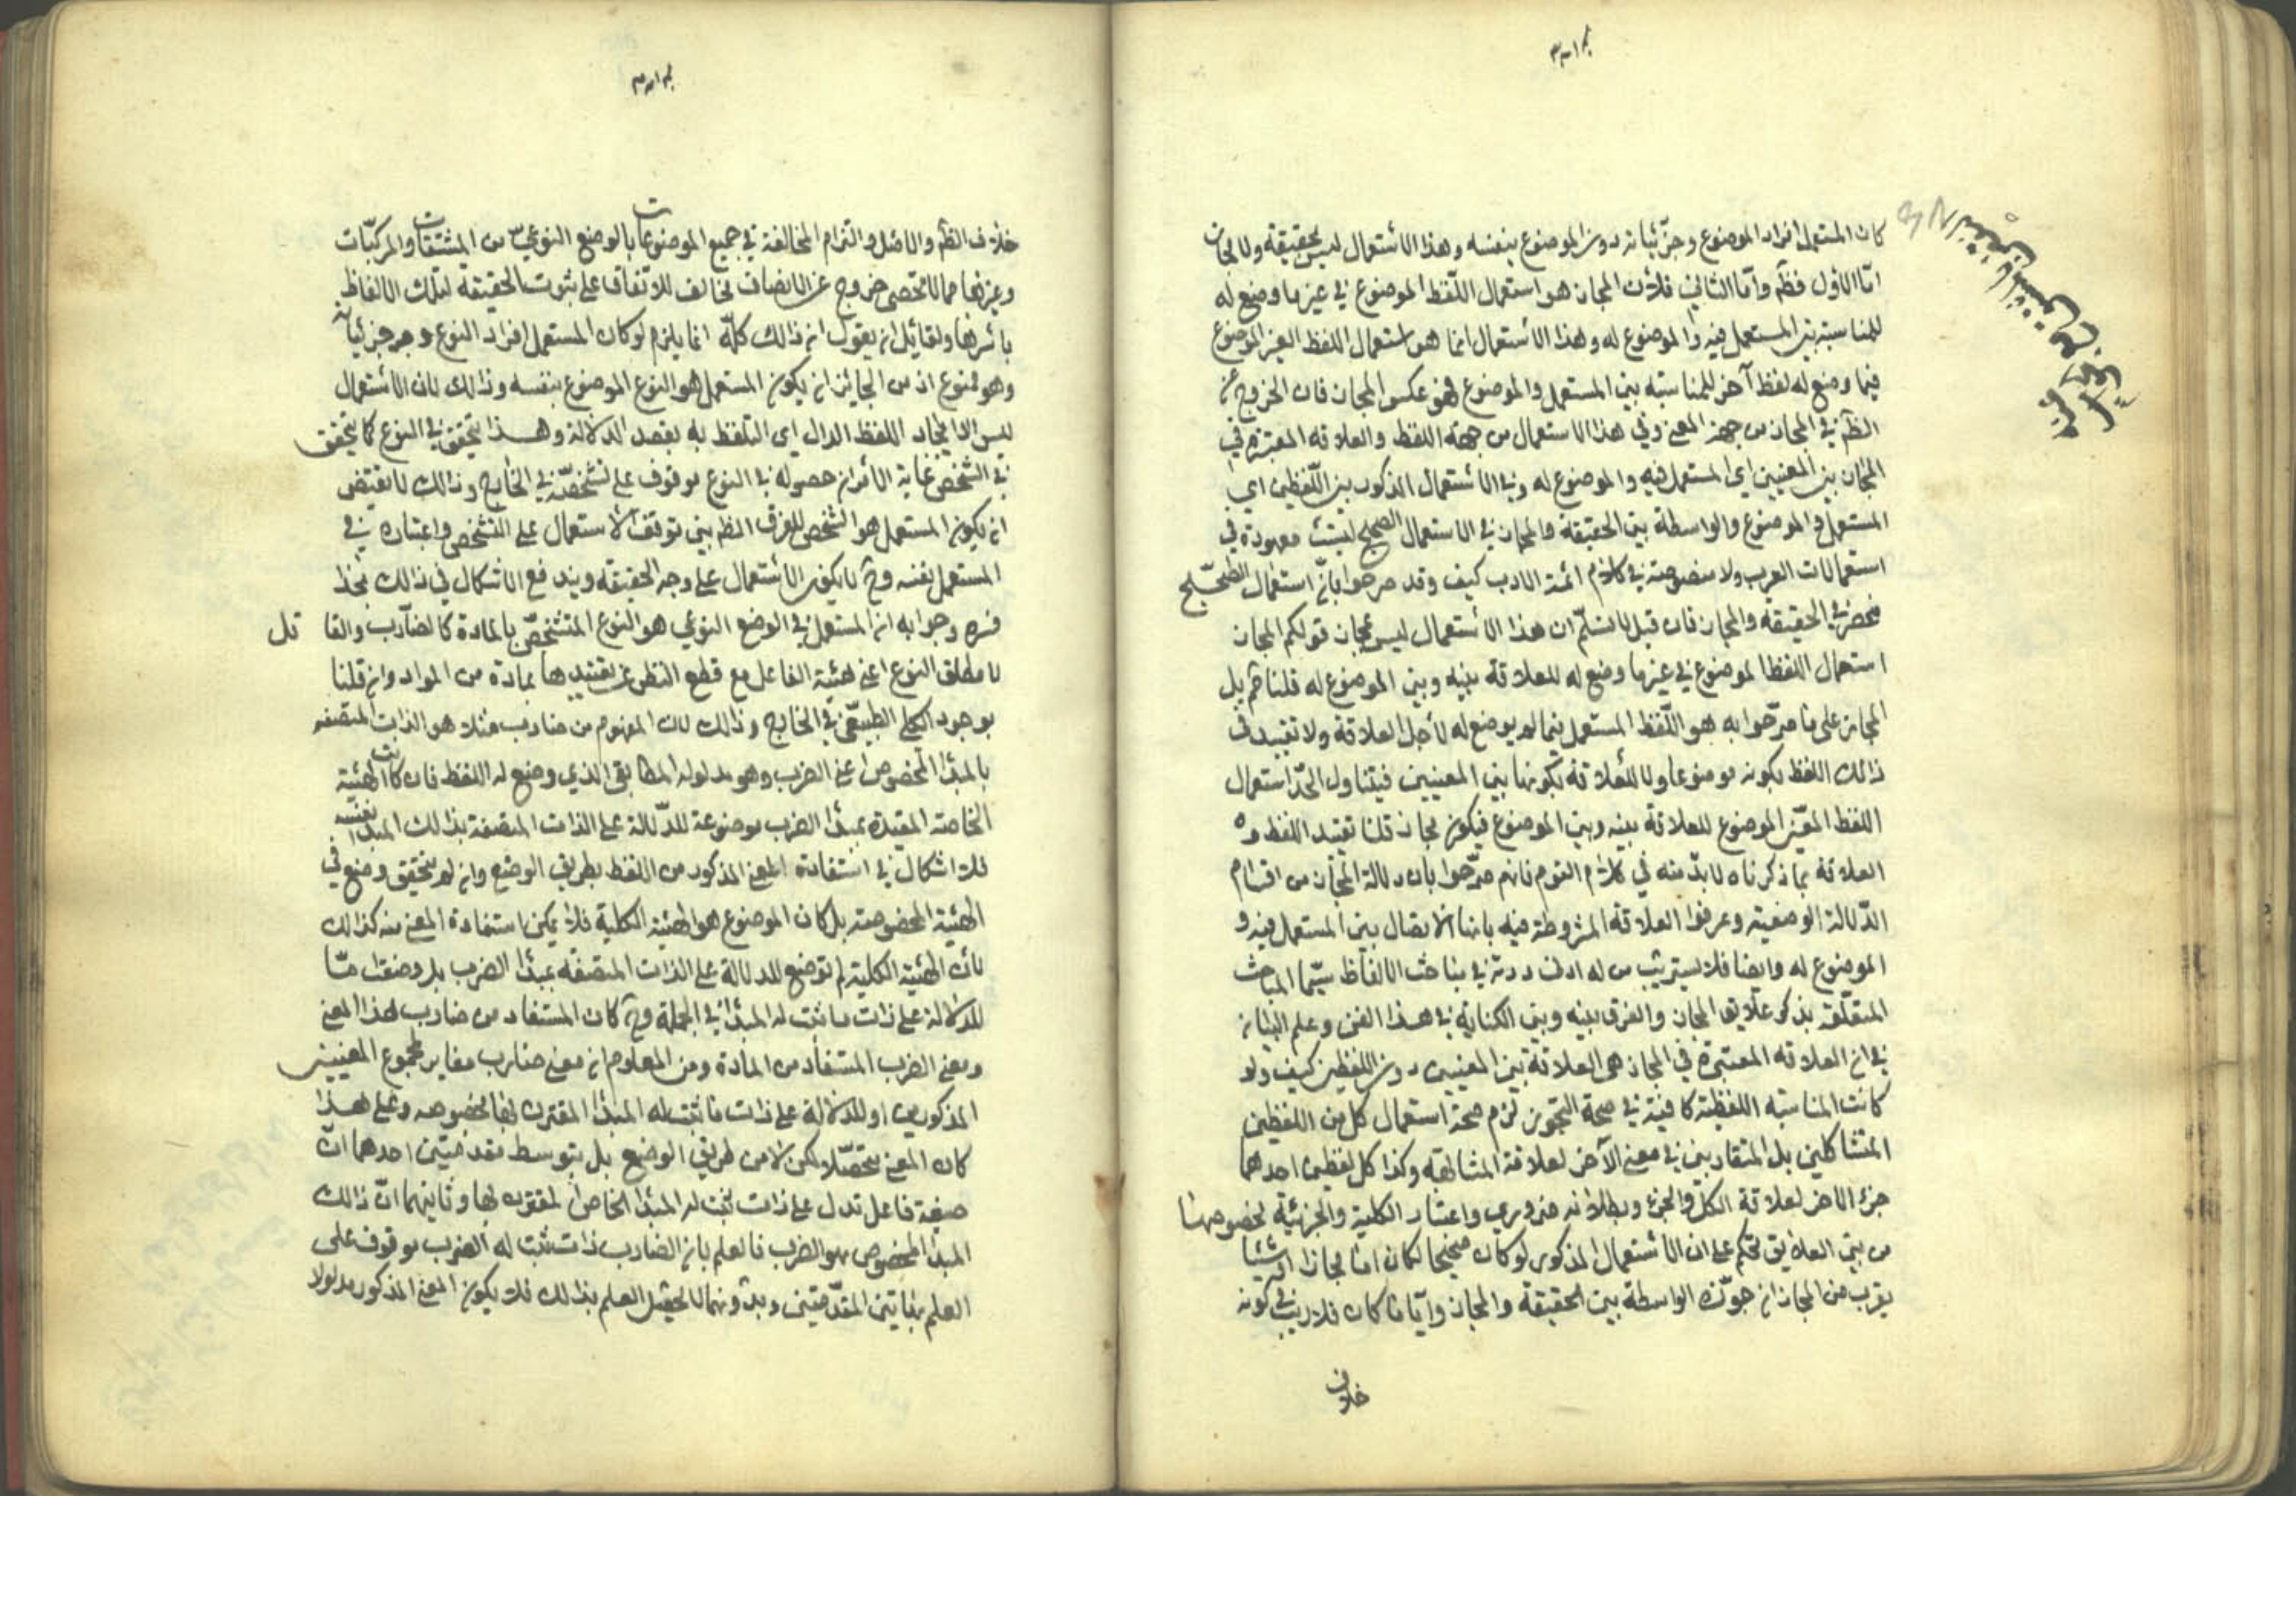 كان المستعمل افراد الموضوع وجزئياته دون الموضوع بنفسه وهذا الاستعمال ليس بحقيقة ولا مجاز
امّا الاول فظم وامّا الثاني فلأن المجاز هو استعمال اللّفظ الموضوع في غير ما وضع له
للمناسبة بين المستعمل فيه والموضوع له وهذا الاستعمال انما هو استعمال اللفظ الغير الموضوع
فيما وضع له لفظ آخر للمناسبة بين المستعمل والموضوع فهو عكس المجاز فان الخروج عن
الظم في المجاز من جهة المعنى وفي هذا الاستعمال من جهة اللفظ والعلاقة المعتبرة في
المجاز بين المعنيين اي المستعمل فيه والموضوع له وفي الاستعمال المذكور بين اللّفظين اي
المستعمل والموضوع والواسطة بين الحقيقة والمجاز في الاستعمال الصحيح ليست معهودة في
استعمالات العرب ولا منصوصة في كلام ائمة الادب كيف وقد صرحوا بانّ استعمال الصحيح
منحصر في الحقيقة والمجاز فان قيل لا نسلّم ان هذا الاستعمال ليس بمجاز قولكم المجاز
استعمال اللفظ الموضوع في غير ما وضع له للعلاقة بينه وبين الموضوع له قلنا مم بل
المجاز على ما صرّحوا به هو اللّفظ المستعمل فيما لم يوضع له لأجل العلاقة ولا تقييد في
ذلك اللفظ بكونه موضوعا ولا للعلاقة بكونها بين المعنيين فيتناول الحدّ استعمال
اللفظ الغير الموضوع للعلاقة بينه وبين الموضوع فيكون مجازا قلنا تقييد اللفظ و
العلاقة بما ذكرناه لا بدّ منه في كلام القوم فانهم صرّحوا بان دلالة المجاز من اقسام
الدّلالة الوضعية وعرفوا العلاقة المشروطة فيه بانها الاتصال بين المستعمل فيه و
الموضوع له وايضا فلا يستريب من له ادنى دربة في مباحث الالفاظ سيّما المباحث
المتعلّقة بذكر علايق المجاز والفرق بينه وبين الكناية في هذا الفن وعلم البيان
في ان العلاقة المعتبرة في المجاز هى العلاقة بين المعنيين دون اللفظين كيف ولو
كانت المناسبة اللفظية كافية في صحة التجوز لزم صحة استعمال كل من اللفظين
المتشاكلين بل المتقاربين في معنى الآخر لعلاقة المشابهة وكذا كل لفظين احدهما
جزء الاخر لعلاقة الكل والجزء وبطلانه ضروري واعتبار الكلية والجزئية بخصوصهما
من بين العلايق تحكم على ان الاستعمال المذكور لو كان صحيحا لكان امّا مجازا او شيئا
يقرب من المجاز ان جوّزنا الواسطة بين الحقيقة والمجاز وايّا ما كان فلا ريب في كونه
خلاف
خلاف الظم والاصل والتزام المخالفة في جميع الموضوعات بالوضع النوعيّ من المشتقات والمركبّات
وغيرها مما لا تحصى خروج عن الانصاف مخالف للاتفاق على ثبوت الحقيقة لتلك الالفاظ
باسرها ولقائل ان يقول ان ذلك كلّه انما يلزم لو كان المستعمل افراد النوع وجزئياته
وهو ممنوع اذ من الجايز ان يكون المستعمل هو النوع الموضوع بنفسه وذلك لان الاستعمال
ليس الا ايجاد اللفظ الدال اي التلفظ به بقصد الدلالة وهذا يتحقق في النوع كما يتحقق
في الشخص غاية الامر ان حصوله في النوع موقوف على تشخّصه في الخارج وذلك لا يقتضى
ان يكون المستعمل هو الشخص للفرق الظم بين توقف الاستعمال على التشخص واعتباره في
المستعمل نفسه وح لا يكون الاستعمال على وجه الحقيقة ويندفع الاشكال في ذلك بحذا
فيره وجوابه ان المستعمل في الوضع النوعي هو النوع المتشخّص بالمادة كالضارب والقاتل
لا مطلق النوع اعنى هيئة الفاعل مع قطع النظر عن تقييدها بمادة من المواد وان قلنا
بوجود الكلي الطبيعيّ في الخارج وذلك لان المفهوم من ضارب مثلا هو الذات المتصفة
بالمبدأ المخصوص اعنى الضرب وهو مدلوله المطابقى الذي وضع له اللفظ فان كانت الهيئة
الخاصة المقيدة بمبدأ الضرب موضوعة للدّلالة على الذات المتصفة بذلك المبدأ بعينه
فلا اشكال في استفادة المعنى المذكور من اللفظ بطريق الوضع وان لم يتحقق وضع في
الهيئة المخصوصة بل كان الموضوع هو الهيئة الكلية فلا يمكن استفادة المعنى منه كذلك
لان الهيئة الكلية لم توضع للدلالة على الذات المتصفة بمبدأ الضرب بل وضعت امّا
للدلالة على ذات ما ثبت له المبدأ في الجملة وح كان المستفاد من ضارب هذا المعنى
ومعنى الضرب المستفاد من المادة ومن المعلوم ان معنى ضارب مغاير لمجموع المعنيين
المذكورين او للدلالة على ذات ما ثبت له المبدأ المقترن بها بخصوصه وعلى هذا
كان المعنى متحصّلا لكن لا من طريق الوضع بل بتوسط مقدمتين احدهما انّ
صيغة فاعل تدل على ذات ثبت له المبدأ الخاص المقترن بها وثانيهما انّ ذلك
المبدأ المخصوص هو الضرب فالعلم بان الضارب ذات ثبت له الضرب موقوف على
العلم بهاتين المقدّمتين وبدونهما لا يحصل العلم بذلك فلا يكون المعنى المذكور مدلولا